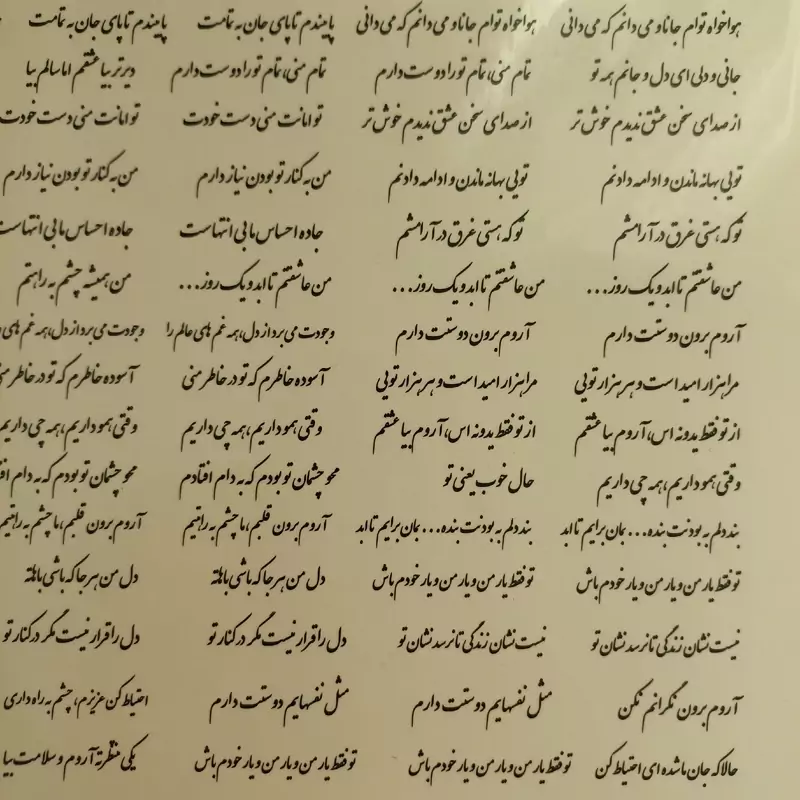 هواخواه توام جانا و می دانم که می دانی هواخواه توام جانا و می دانم که می دانی پابندم تا پای جان به تمامت پابندم تا پای جان به تمامت
جانی و دلی ای دل و جانم همه تو تمام منی، تمام تو را دوست دارم تمام منی، تمام تو را دوست دارم دیرتر بیا عشقم اما سالم بیا
از صدای سخن عشق ندیدم خوش تر از صدای سخن عشق ندیدم خوش تر تو امانت منی دست خودت تو امانت منی دست خودت
تویی بهانه ماندن و ادامه دادنم تویی بهانه ماندن و ادامه دادنم من به کنار تو بودن نیاز دارم من به کنار تو بودن نیاز دارم
تو که هستی غرق در آرامشم تو که هستی غرق در آرامشم جاده احساس ما بی انتهاست جاده احساس ما بی انتهاست
من عاشقتم تا ابد و یک روز... من عاشقتم تا ابد و یک روز... من عاشقتم تا ابد و یک روز... من همیشه چشم به راهتم
آروم برون دوستت دارم آروم برون دوستت دارم وجودت می برد از دل، همه غم های عالم را وجودت می برد از دل، همه غم های
مرا هزار امید است و هر هزار تویی مرا هزار امید است و هر هزار تویی آسوده خاطرم که تو در خاطر منی آسوده خاطرم که تو در خاطر
از تو فقط یدونه اس، آروم بیا عشقم از تو فقط یدونه اس، آروم بیا عشقم وقتی همو داریم، همه چی داریم وقتی همو داریم، همه چی داریم
وقتی همو داریم، همه چی داریم حال خوب یعنی تو محو چشمان تو بودم که به دام افتادم محو چشمان تو بودم که به دام
بند دلم به بودنت بنده... بمان برایم تا ابد بند دلم به بودنت بنده... بمان برایم تا ابد آروم برون قلبم، ما چشم به راهتیم آروم برون قلبم، ما چشم به راهتیم
تو فقط یار من و یار من و یار خودم باش تو فقط یار من و یار من و یار خودم باش دل من هر جا که باشی باهاته دل من هر جا که باشی باهاته
نیست نشان زندگی تا نرسد نشان تو نیست نشان زندگی تا نرسد نشان تو دل را قرار نیست مگر در کنار تو دل را قرار نیست مگر در کنار تو
آروم برون نگرانم نکن مثل نفسهایم دوستت دارم مثل نفسهایم دوستت دارم احتیاط کن عزیزم، چشم به راه داری
حالا که جان ما شده ای احتیاط کن تو فقط یار من و یار من و یار خودم باش تو فقط یار من و یار من و یار خودم باش یکی منتظرته آروم و سلامت بیا